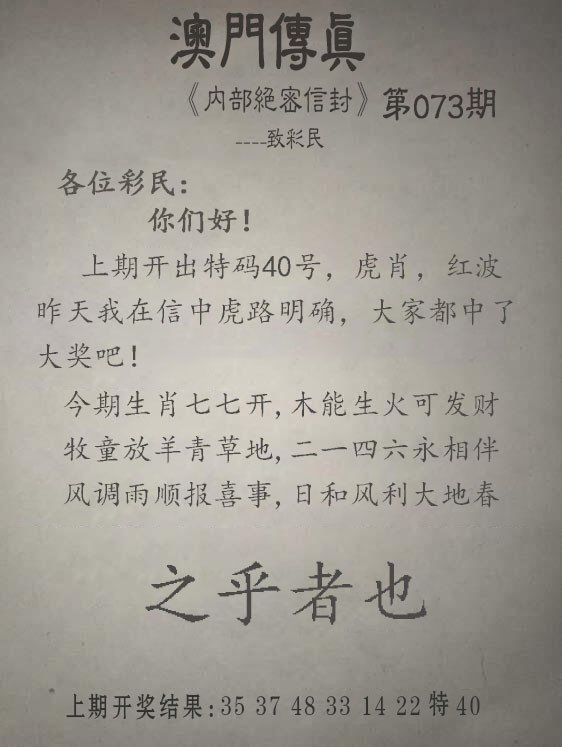 澳門傳真
《内部絕密信封》第073期
----致彩民
各位彩民：
你们好！
上期开出特码40号，虎肖，红波
昨天我在信中虎路明确，大家都中了
大奖吧！
今期生肖七七开,木能生火可发财
牧童放羊青草地,二一四六永相伴
风调雨顺报喜事,日和风利大地春
之乎者也
上期开奖结果:35 37 48 33 14 22特40